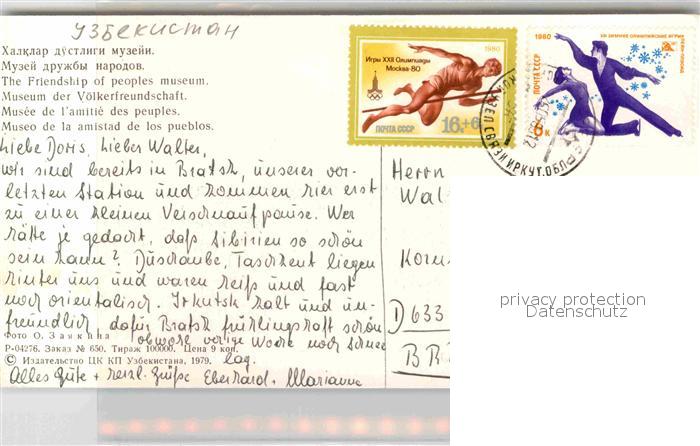 УЗБЕКИСТАН
Халқлар дўстлиги музейи.
Музей дружбы народов.
The Friendship of peoples museum.
Museum der Völkerfreundschaft.
Musée de l'amitié des peuples.
Museo de la amistad de los pueblos.
Игры XXII Олимпиады
Москва-80
1980
ПОЧТА СССР
16+6
1980
XIII ЗИМНИЕ ОЛИМПИЙСКИЕ ИГРЫ
ПОЧТА СССР
6к
Liebe Doris, lieber Walter,
wir sind bereits in Bratsk, unserer vor-
letzten Station und kommen hier erst
zu einer kleinen Verschnaufpause. Wer
hätte je gedacht, daß Sibirien so schön
sein kann? Duschanbe, Taschkent liegen
hinter uns und waren heiß und fast
noch orientalisch. Irkutsk kalt und un-
freundlich, dafür Bratsk frühlingshaft schön
obwohl vorige Woche noch Schnee
lag.
Alles Gute + herzl. Grüße Eberhard + Marianne
Фото О. Заякина
Р-04276. Заказ № 650. Тираж 100000. Цена 9 коп.
© Издательство ЦК КП Узбекистана, 1979.
Herrn
Wal
Korn
D 633
BR
privacy protection
Datenschutz